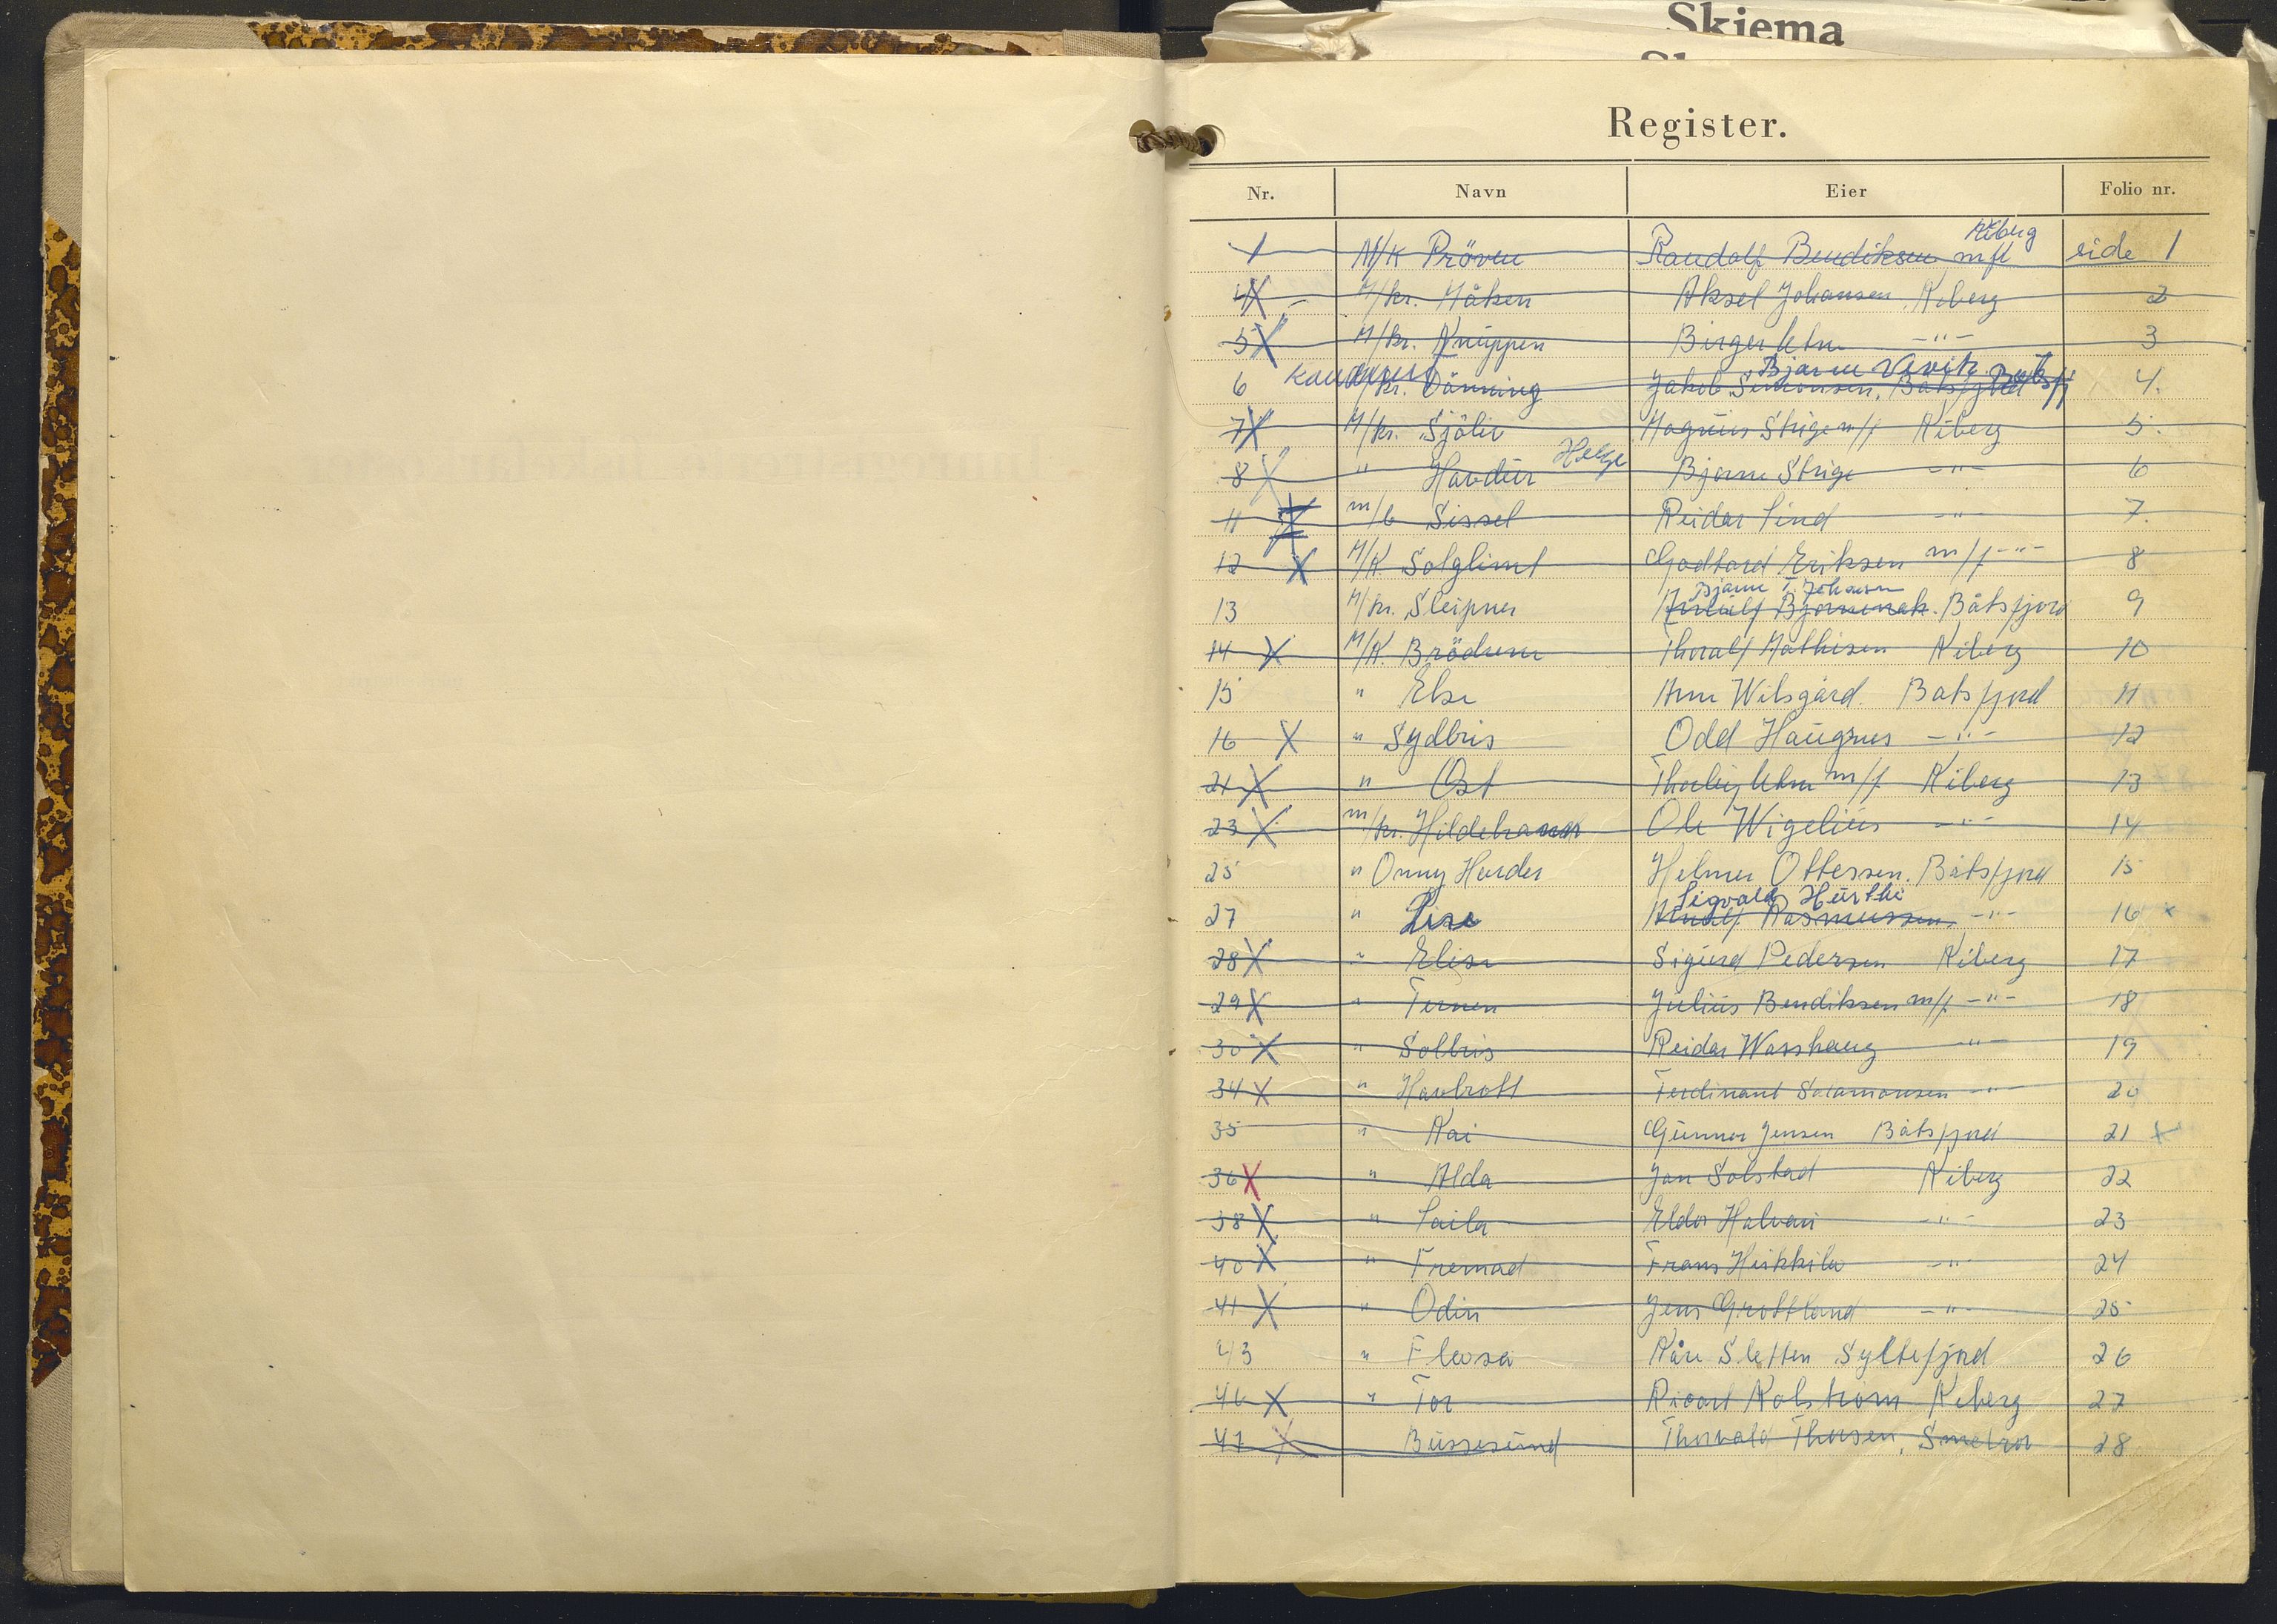 Skjema
Register.
Nr. Navn Eier Folio nr.
1 M/K Pröven Randolf Bendiksen m/fl Kiberg side 1
4 M/kr. Måken Aksel Johansen, Kiberg 2
5 M/kr. Knuppen Birger Uhre -"- 3
Bjarne
6 M/kr. Dönning Jakob Simonsen, Båtsfjord 4.
7 M/kr. Sjöliv Magnus Strige m/f Kiberg 5.
Helge
8 " Havdur Bjarne Strige -"- 6
11 m/b Sissel Reidar Lind -"- 7.
12 M/K Solglimt Godtard Eriksen m/f -"- 8
Bjarne T. Johansen
13 M/kr. Sleipner Båtsfjord 9
14 M/K. Brödrene Thoralf Mathisen Kiberg 10
15 " Else Arne Wilsgård. Båtsfjord 11
16 " Sydbris Odd Haugnes -"- 12
21 " Ost Thorleif Uhre m/f Kiberg 13
23 m/kr. Ole Wigelius -"- 14
25 " Onny Harder Helmer Ottessen. Båtsfjord 15
Sigvald Hurthi
27 " Lise Rasmussen -"- 16 x
28 " Elise Sigurd Pedersen Kiberg 17
29 " Ternen Julius Bendiksen m/f -"- 18
30 " Solbris Reidar Warhaug -"- 19
34 " Havbrott Ferdinant Salamonsen -"- 20
35 " Kai Gunnar Jensen Båtsfjord 21 x
36 " Alda Jan Solstad Kiberg 22
38 " Laila Eldor Halvari -"- 23
40 " Fremad Frans Heikkila -"- 24
41 " Odin Jens Grottland -"- 25
43 " Fleosa Kåre Sletten Syltefjord 26
46 " Tor Rikart Kalstrøm Kiberg 27
47 Bussesund Thorvald Thorsen, Smelror 28